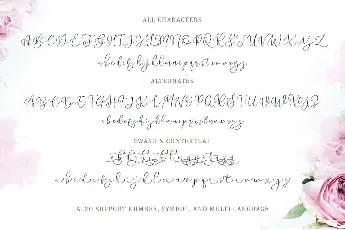 ALL CHARACTERS
ABCDEFGHIJKLMNOPQRSTUVWXYZ
abcdefghijklmnopqrstuvwxyz
ALTERNATES
ABCDEFGHIJKLMNOPQRSTUVWXYZ
abcdefghijklmnopqrstuvwxyz
SWASH & CONTEXTUAL
abcdefghijklmnopqrstuvwxyz
ALSO SUPPORT NUMBER, SYMBOL, AND MULTI LANGUAGE